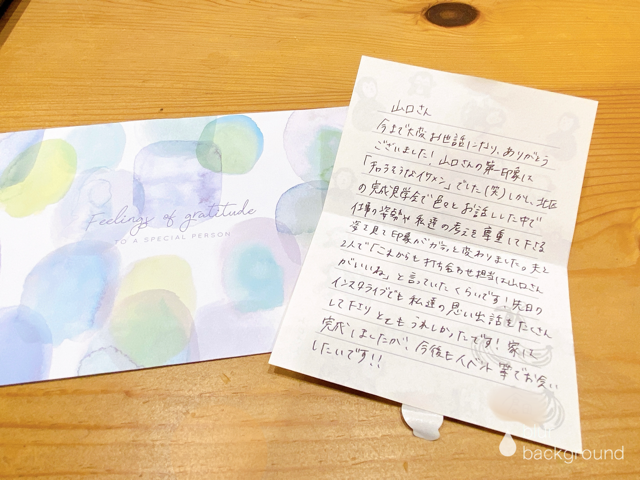 Feelings of gratitude
TO A SPECIAL PERSON
山口さん
今まで大変お世話になり、ありがとう
ございました！山口さんの第一印象は
「チャラそうなイケメン」でした(笑)しかし、北区
の完成見学会で色々とお話しした中で
仕事の姿勢や私達の考えを尊重して下さる
姿を見て印象がガラッと変わりました。夫と
2人で「これからも打ち合わせ担当は山口さん
がいいね」と言っていたくらいです！先日の
インスタライブでも私達の思い出話をたくさん
して下さりとてもうれしかったです！家は
完成しましたが、今後もイベント等でお会い
したいです!!
background